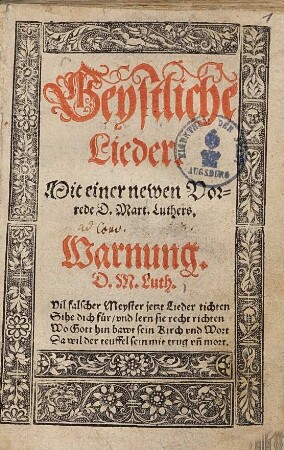 1
Geystliche
Lieder.
Mit einer newen Vor⸗
rede D. Mart. Luthers.
Warnung.
D. M. Luth.
Vil falscher Meyster jetzt Lieder tichten
Sihe dich für/ vnd lern sie recht richten
Wo Got hin bawt sein Kirch vnd Wort
Da wil der teuffel sein mit trug vñ mort.
AUGSBURG